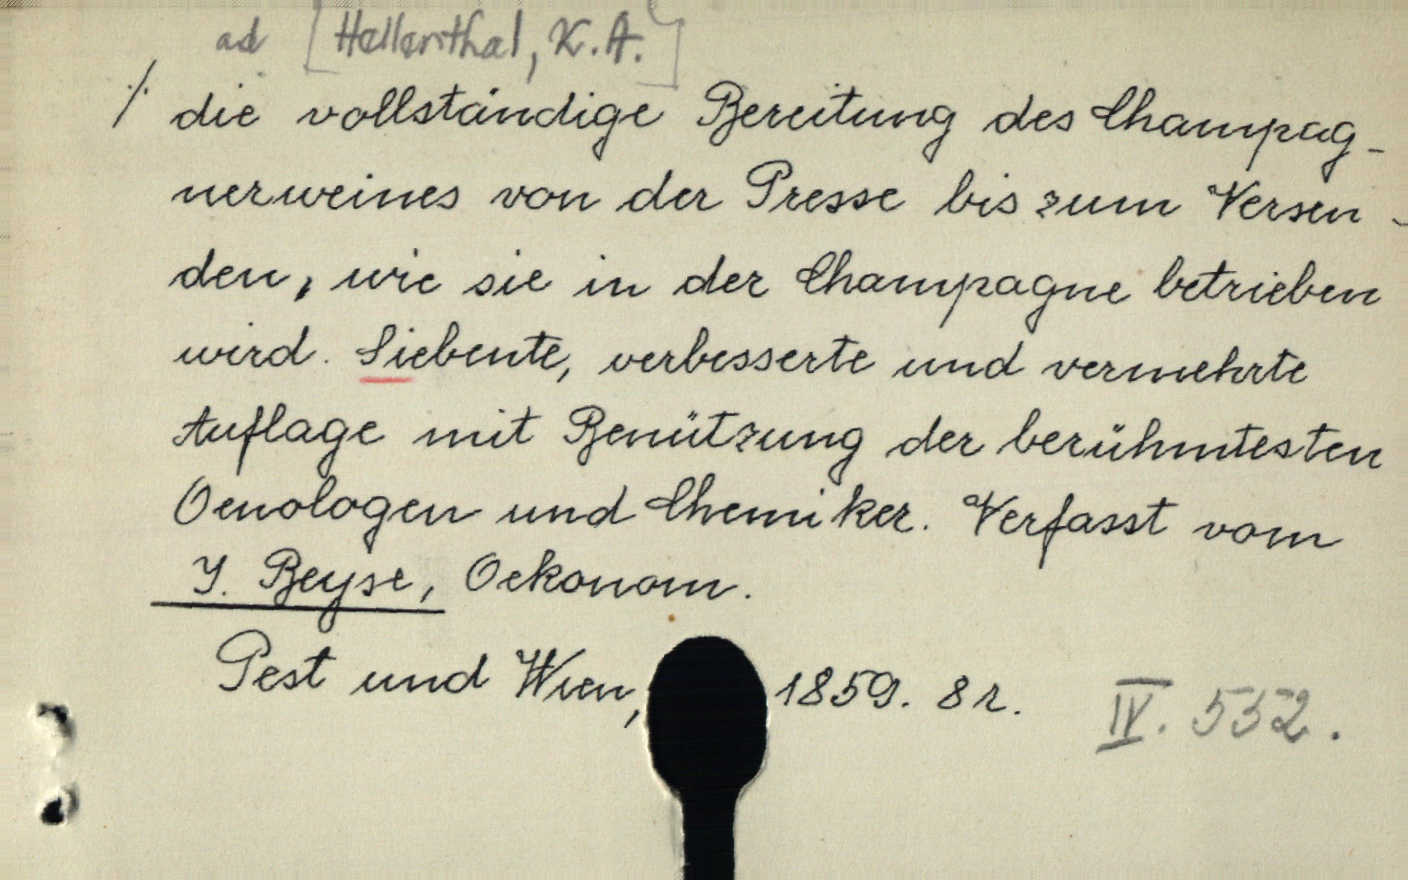 ad [Hellenthal, K. A.]
./. die vollständige Bereitung des Champag-
nerweines von der Presse bis zum Versen-
den, wie sie in der Champagne betrieben
wird. Siebente, verbesserte und vermehrte
Auflage mit Benützung der berühmtesten
Oenologen und Chemiker. Verfasst vom
J. Beyse, Oekonom.
Pest und Wien, 1859. 8r.
IV. 552.